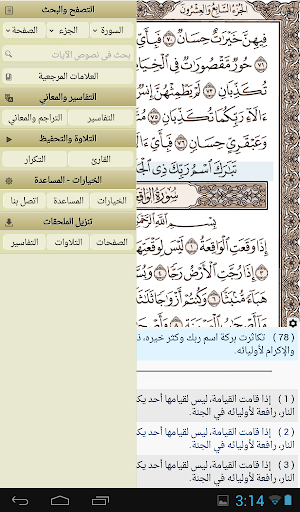 التصفح والبحث
السورة
الجزء
الصفحة
بحث في نصوص الآيات
العلامات المرجعية
التفاسير والمعاني
التفاسير
التراجم والمعاني
التلاوة والتحفيظ
القارئ
التكرار
الخيارات - المساعدة
الخيارات
المساعدة
اتصل بنا
تنزيل الملحقات
الصفحات
التلاوات
التفاسير
الجزء السابع والعشرون
فِيهِنَّ خَيْرَاتٌ حِسَانٌ ٧٠ فَبِأَيِّ
حُورٌ مَّقْصُورَاتٌ فِي الْخِيَا
تُكَذِّبَانِ ٧٣ لَمْ يَطْمِثْهُنَّ إِنسٌ
ءَالَآءِ رَبِّكُمَا تُكَذِّبَانِ
وَعَبْقَرِيٍّ حِسَانٍ ٧٦ فَبِأَيِّ
تَبَارَكَ اسْمُ رَبِّكَ ذِي الْجَ
سُورَةُ الوَاقِ
بِسْمِ اللَّهِ الرَّحْمَ
إِذَا وَقَعَتِ الْوَاقِعَةُ ١ لَيْسَ لِوَقْعَتِهَا
إِذَا رُجَّتِ الْأَرْضُ رَجًّا
هَبَآءً مُّنۢبَثًّا ٦ وَكُنتُمْ أَزْوَاجًا ثَلَاثَةً
( 78 ) تكاثرت بركة اسم ربك وكثر خيره، ذ
والإكرام لأوليائه.
( 1 ) إذا قامت القيامة، ليس لقيامها أحد يك
النار، رافعة لأوليائه في الجنة.
( 2 ) إذا قامت القيامة، ليس لقيامها أحد يك
النار، رافعة لأوليائه في الجنة.
( 3 ) إذا قامت القيامة، ليس لقيامها أحد يك
النار، رافعة لأوليائه في الجنة.
3:14